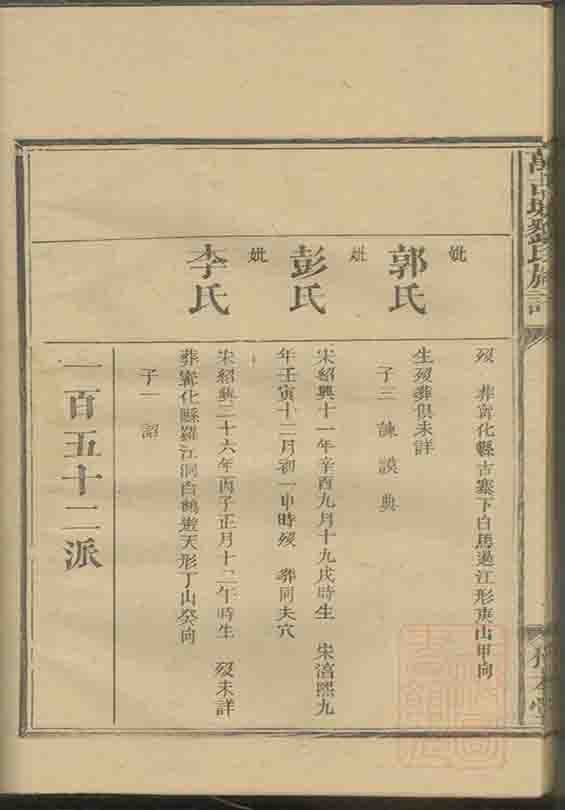 氏族譜
本堂
歿 葬寗化縣古寨下白馬過江形庚山甲向
妣
郭氏
生歿葬俱未詳
子三 諫 謨 典
妣
彭氏
宋紹興十一年辛酉九月十九戌時生 宋淳熙九
年壬寅十二月初一申時歿 葬同夫穴
妣
李氏
宋紹興二十六年丙子正月十二午時生 歿未詳
葬寗化縣羅江洞白鶴遊天形丁山癸向
子一 詔
一百五十二派